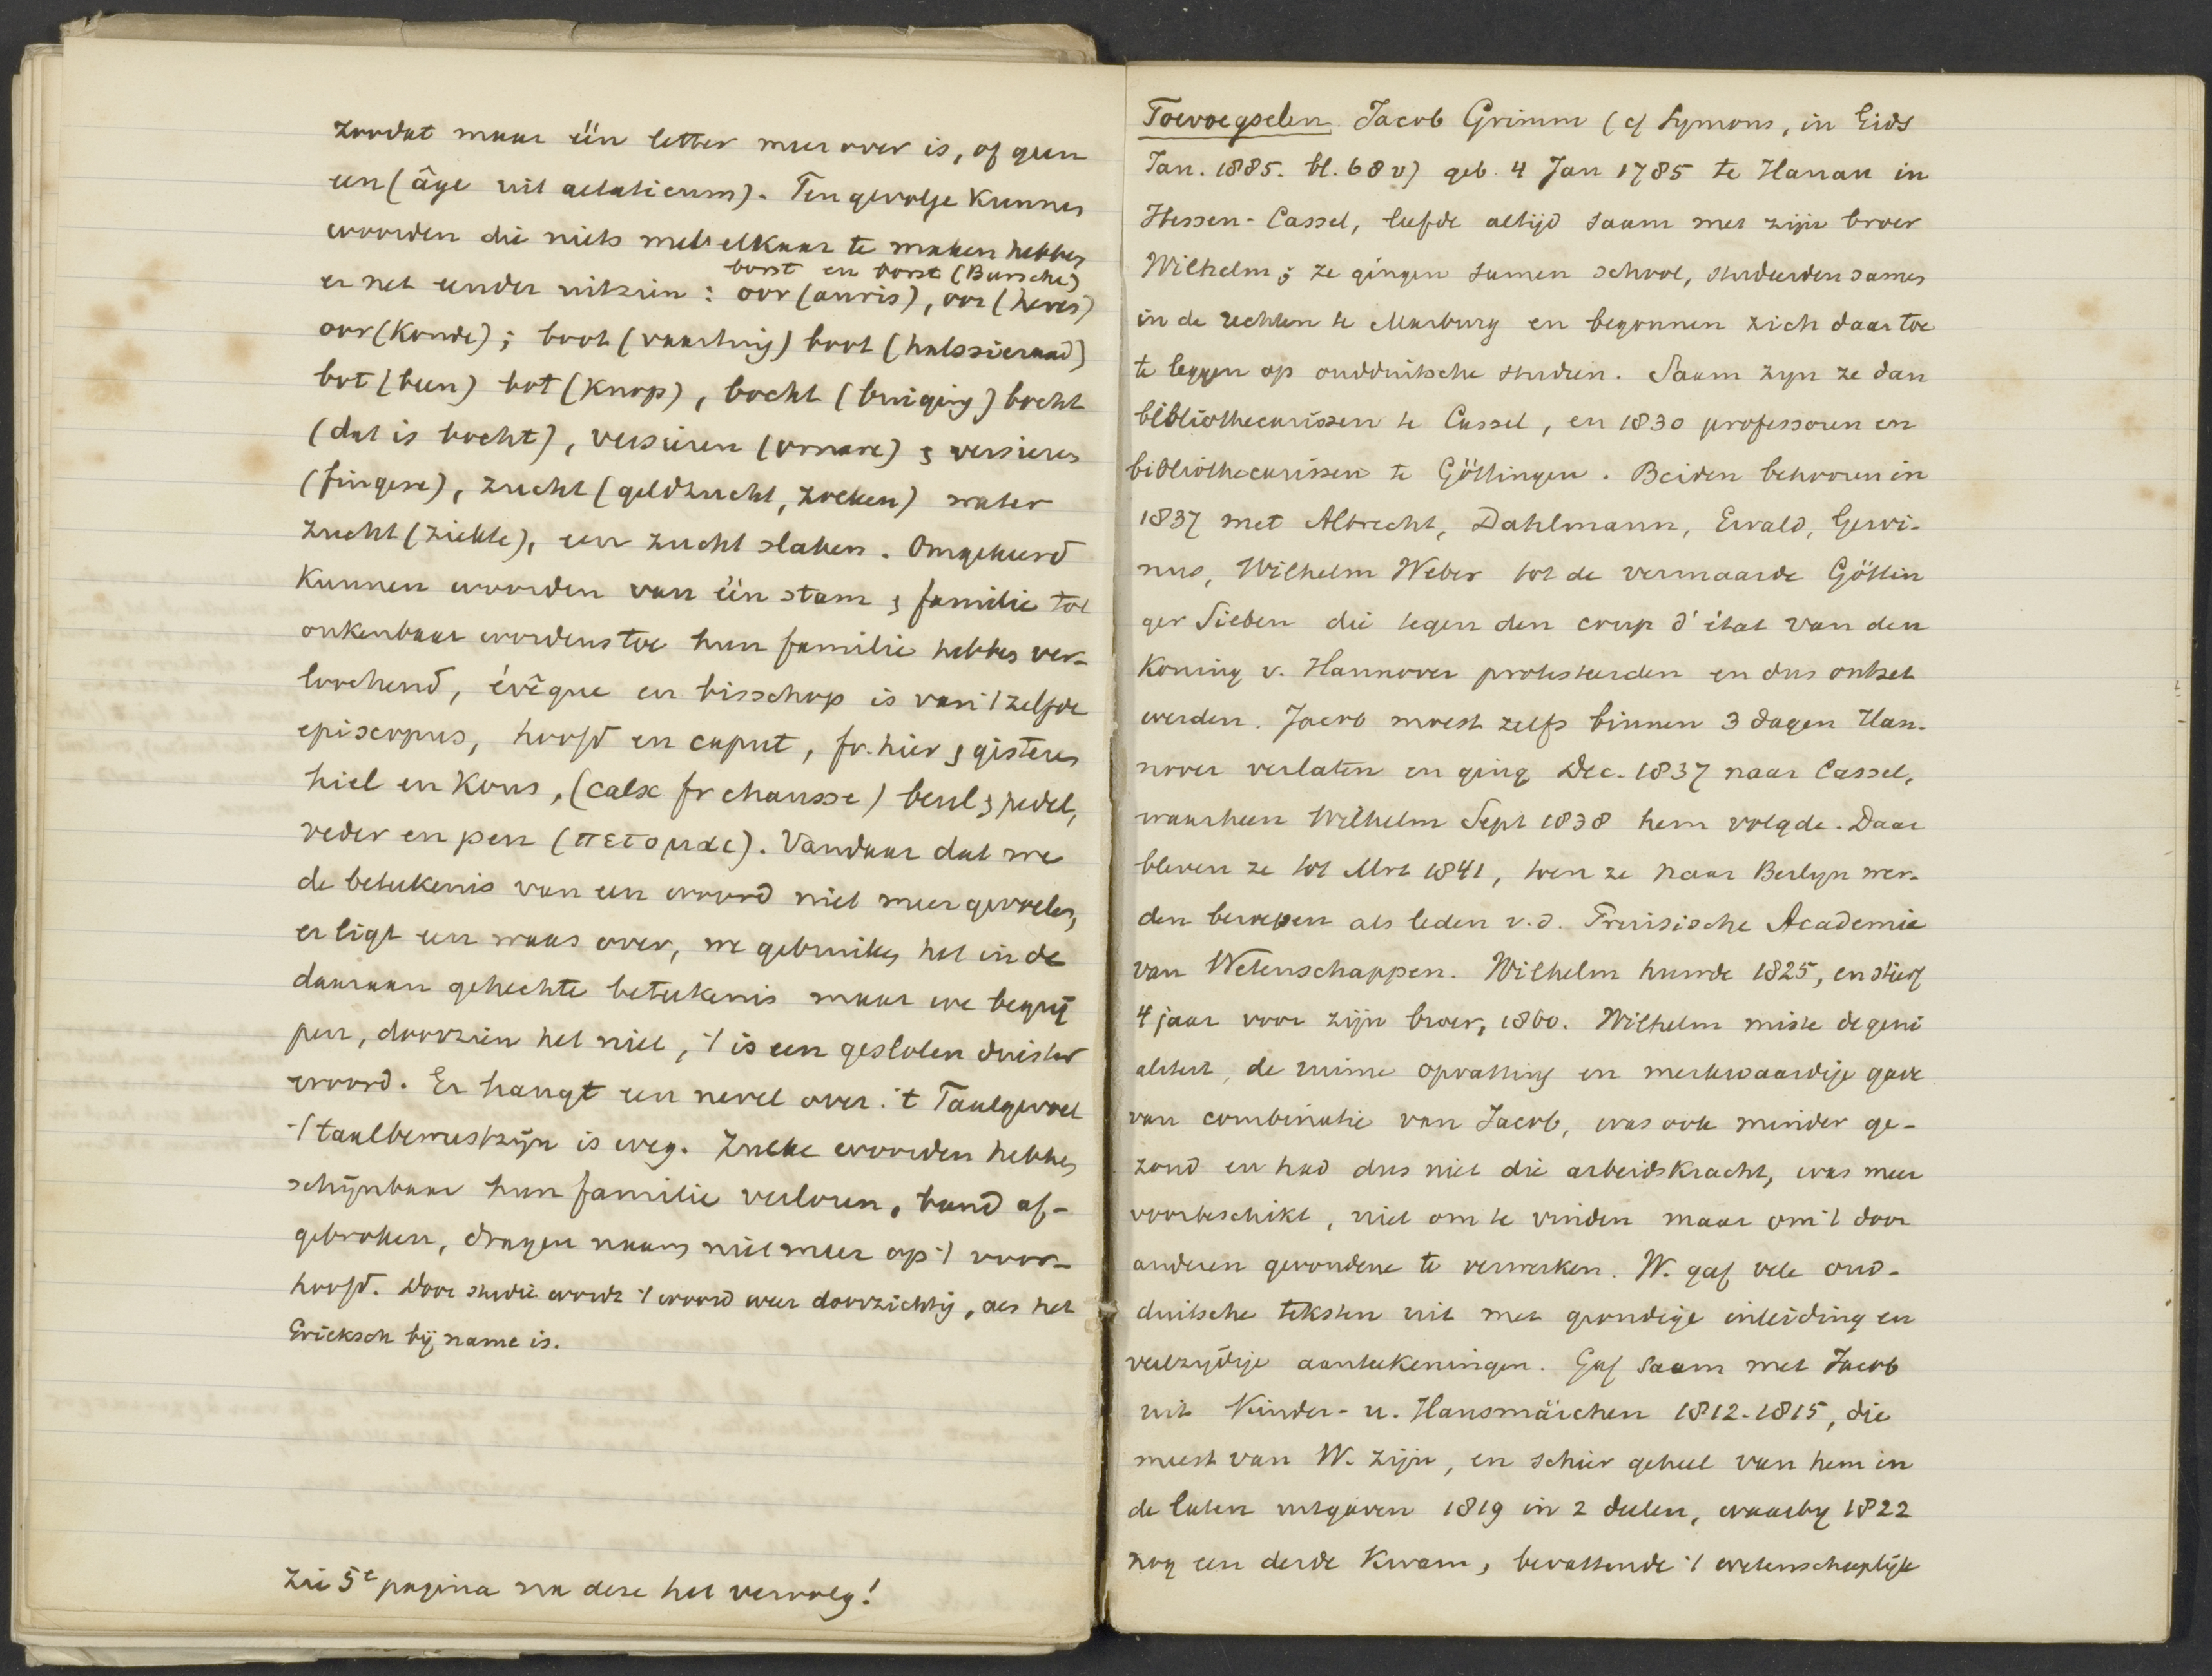 zoodat maar één letter meer over is, of geen
een (âge uit aetaticum). Tengevolge kunnen
woorden die niets met elkaar te maken hebben
borst en borst (Bursche)
er net eender uitzien: oor (auris), oor (heres)
oor (konde); boot (vaartuig) boot (halssieraad)
bot (been) bot (knop), bocht (buiging) bocht
(dat is bocht), versieren (ornare) & versieren
(fingere), zucht (geldzucht, zoeken) water
zucht (ziekte), een zucht slaken. Omgekeerd
kunnen woorden van één stam & familie tot
onkenbaar wordens toe hun familie hebben ver-
loochend, évêque en bisschop is van 't zelfde
episcopus, hoofd en caput, fr. hier & gisteren
hiel en kous, (calx fr chausse) beul & pedel,
veder en pen (πετομαι). Vandaar dat we
de beteekenis van een woord niet meer gevoelen,
er ligt een waas over, we gebruiken het in de
daaraan gehechte beteekenis maar we begrij
pen, doorzien het niet, 't is een gesloten duister
woord. Er hangt een nevel over. 't Taalgevoel
't taalbewustzijn is weg. Zulke woorden hebben
schijnbaar hun familie verloren, band af-
gebroken, dragen naam niet meer op 't voor-
hoofd. Door studie wordt 't woord weer doorzichtig, als het
Grieksch bij name is.
Zie 5e pagina na deze het vervolg!
Toevoegselen. Jacob Grimm (cf Symons, in Gids
Jan. 1885. bl. 68 v) geb. 4 Jan 1785 te Hanau in
Hessen-Cassel, leefde altijd saam met zijn broer
Wilhelm; ze gingen samen school, studeerden samen
in de rechten te Marburg en begonnen zich daar toe
te leggen op oudduitsche studien. Saam zyn ze dan
bibliothecarissen te Cassel, en 1830 professoren en
bibliothecarissen te Göttingen. Beiden behooren in
1837 met Albrecht, Dahlmann, Ewald, Gervi-
nus, Wilhelm Weber tot de vermaarde Göttin
ger Sieben die tegen den coup d'état van den
Koning v. Hannover protesteerden en dus ontzet
werden. Jacob moest zelfs binnen 3 dagen Han-
nover verlaten en ging Dec. 1837 naar Cassel,
waarheen Wilhelm Sept 1838 hem volgde. Daar
bleven ze tot Mrt 1841, toen ze naar Berlyn wer-
den beroepen als leden v.d. Pruisische Academie
van Wetenschappen. Wilhelm huwde 1825, en stierf
4 jaar voor zijn broer, 1860. Wilhelm miste de geni
aliteit, de ruime opvatting en merkwaardige gave
van combinatie van Jacob, was ook minder ge-
zond en had dus niet die arbeidskracht, was meer
voorbeschikt, niet om te vinden maar om 't door
anderen gevondene te verwerken. W. gaf vele oud-
duitsche teksten uit met grondige inleiding en
veelzydige aanteekeningen. Gaf saam met Jacob
uit Kinder- u. Hausmärchen 1812-1815, die
meest van W. zijn, en schier geheel van hem in
de laten uitgaven 1819 in 2 deelen, waarby 1822
nog een derde kwam, bevattende 't wetenschaplijk